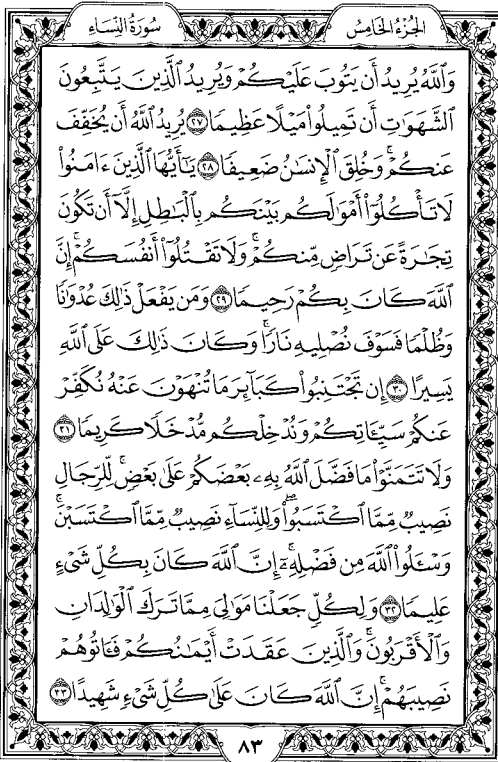 الجُزْءُ الخَامِسُ
سُورَةُ النِّسَاءِ
وَاللَّهُ يُرِيدُ أَن يَتُوبَ عَلَيْكُمْ وَيُرِيدُ الَّذِينَ يَتَّبِعُونَ
الشَّهَوَٰتِ أَن تَمِيلُوا۟ مَيْلًا عَظِيمًا ٢٧ يُرِيدُ اللَّهُ أَن يُخَفِّفَ
عَنكُمْ ۚ وَخُلِقَ الْإِنسَٰنُ ضَعِيفًا ٢٨ يَٰٓأَيُّهَا الَّذِينَ ءَامَنُوا۟
لَا تَأْكُلُوٓا۟ أَمْوَٰلَكُم بَيْنَكُم بِالْبَٰطِلِ إِلَّآ أَن تَكُونَ
تِجَٰرَةً عَن تَرَاضٍ مِّنكُمْ ۚ وَلَا تَقْتُلُوٓا۟ أَنفُسَكُمْ ۚ إِنَّ
اللَّهَ كَانَ بِكُمْ رَحِيمًا ٢٩ وَمَن يَفْعَلْ ذَٰلِكَ عُدْوَٰنًا
وَظُلْمًا فَسَوْفَ نُصْلِيهِ نَارًا ۚ وَكَانَ ذَٰلِكَ عَلَى اللَّهِ
يَسِيرًا ٣٠ إِن تَجْتَنِبُوا۟ كَبَآئِرَ مَا تُنْهَوْنَ عَنْهُ نُكَفِّرْ
عَنكُمْ سَيِّـَٔاتِكُمْ وَنُدْخِلْكُم مُّدْخَلًا كَرِيمًا ٣١
وَلَا تَتَمَنَّوْا۟ مَا فَضَّلَ اللَّهُ بِهِۦ بَعْضَكُمْ عَلَىٰ بَعْضٍ ۚ لِّلرِّجَالِ
نَصِيبٌ مِّمَّا اكْتَسَبُوا۟ ۖ وَلِلنِّسَآءِ نَصِيبٌ مِّمَّا اكْتَسَبْنَ ۚ
وَسْـَٔلُوا۟ اللَّهَ مِن فَضْلِهِۦٓ ۗ إِنَّ اللَّهَ كَانَ بِكُلِّ شَىْءٍ
عَلِيمًا ٣٢ وَلِكُلٍّ جَعَلْنَا مَوَٰلِىَ مِمَّا تَرَكَ الْوَٰلِدَانِ
وَالْأَقْرَبُونَ ۚ وَالَّذِينَ عَقَدَتْ أَيْمَٰنُكُمْ فَـَٔاتُوهُمْ
نَصِيبَهُمْ ۚ إِنَّ اللَّهَ كَانَ عَلَىٰ كُلِّ شَىْءٍ شَهِيدًا ٣٣
٨٣